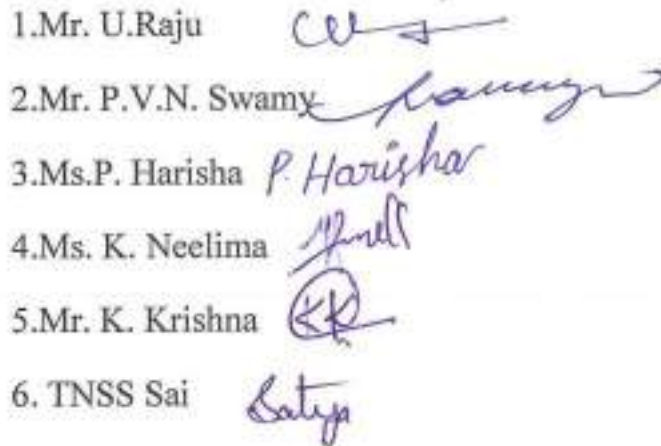 1.Mr. U.Raju
2.Mr. P.V.N. Swamy
3.Ms.P. Harisha P. Harisha
4.Ms. K. Neelima
5.Mr. K. Krishna KK
6. TNSS Sai Satya